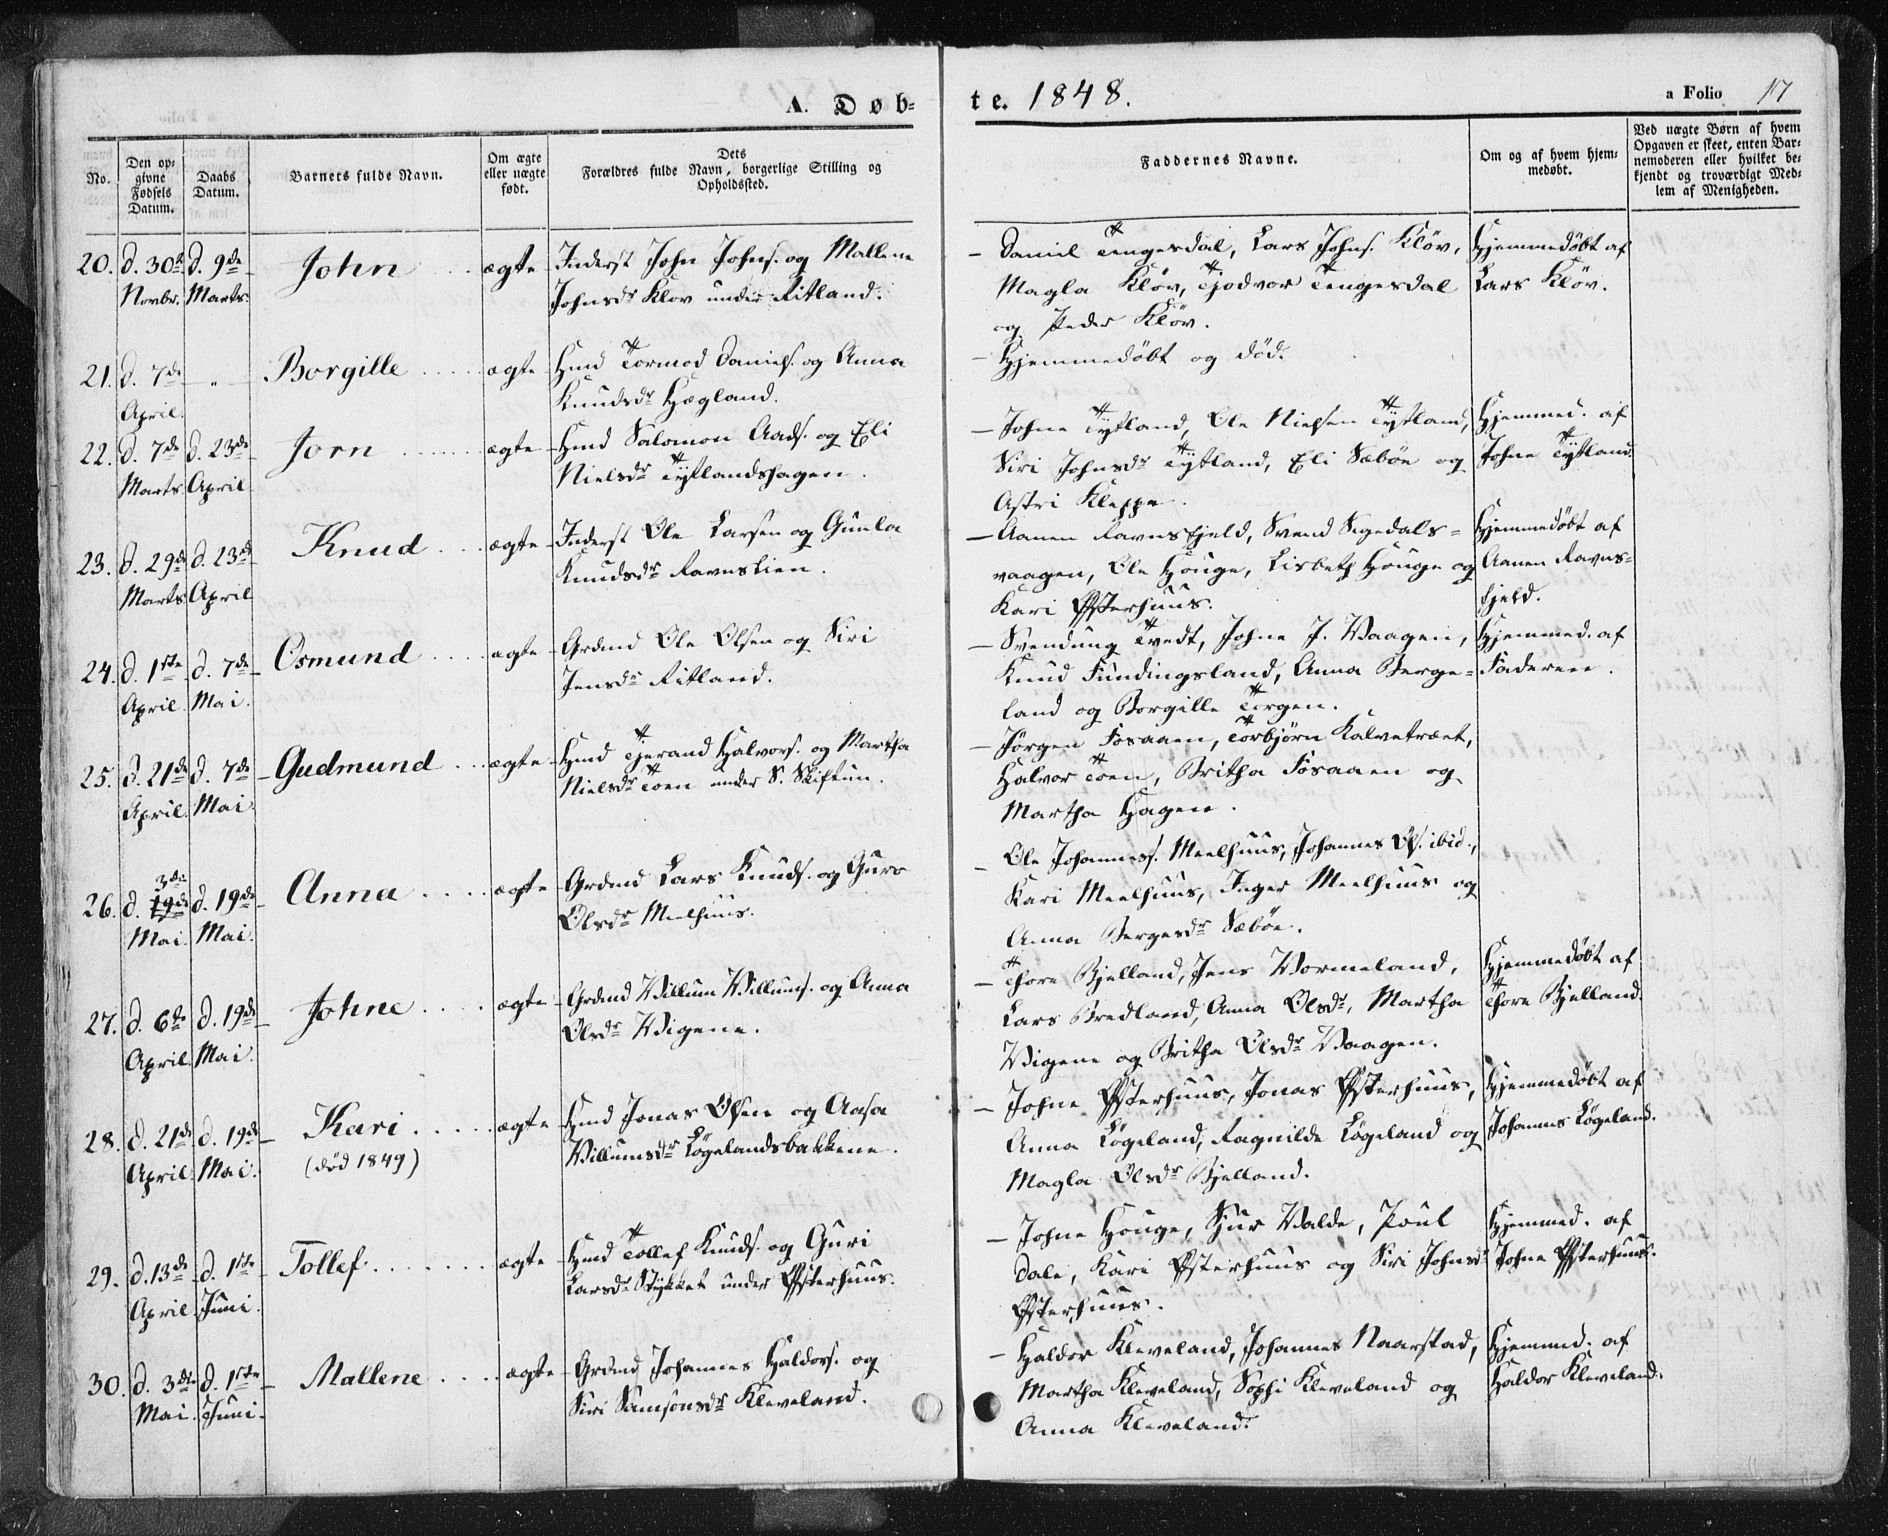 A. Døb-
te. 1848.
a Folio 17
No.
Den op-
givne
Fødsels
Datum.
Daabs
Datum.
Barnets fulde Navn.
Om ægte
eller uægte
født.
Dets
Forældres fulde Navn, borgerlige Stilling og
Opholdssted.
Faddernes Navne.
Om og af hvem hjem-
medøbt.
Ved uægte Børn af hvem
Opgaven er skeet, enten Bar-
nemoderen eller hvilket be-
kjendt og troværdigt Med-
lem af Menigheden.
20. d. 30te d. 9de John ægte Inderst John Johns. og Mallene
Novbr. Marts. Johnsdr Kløv under Ritland.
Daniel Tengesdal, Lars Johns. Kløv,
Magla Kløv, Tjodvor Tengesdal
og Peder Kløv.
Hjemmedøbt af
Lars Kløv.
21. d. 7de " Borgille ægte Hmd Tormod Daniels. og Anna
April. Knudsdr Hægland.
Hjemmedøbt og død.
22. d. 7de d. 23de Jorn ægte Hmd Salomon Aads. og Eli
Marts April Nielsdr Tytlandshagen.
Johne Tytland, Ole Nielsen Tytland,
Siri Johnsdr Tytland, Eli Sæbøe og
Astri Kleppe.
Hjemmed. af
Johne Tytland.
23. d. 29de d. 23de Knud ægte Inderst Ole Larsen og Gunla
Marts April Knudsdr Ravnslien.
Aanen Ravnsfjeld, Svend Segedals-
vaagen, Ole Houge, Lisbeth Houge og
Kari Østerhuus.
Hjemmedøbt af
Aanen Ravns-
fjeld.
24. d. 1ste d. 7de Osmund ægte Grdmd Ole Olsen og Siri
April. Mai. Jensdr Ritland.
Svendung Tvedt, Johne J. Vaagen,
Knud Fundingsland, Anna Berge-
land og Borgille Torgen.
Hjemmed. af
Faderen.
25. d. 21de d. 7de Gudmund ægte Hmd Tjerand Halvors. og Martha
April. Mai. Nielsdr Toen under S. Skiftun.
Jørgen Fosaaen, Torbjørn Kalvetræet,
Halvor Toen, Britha Fosaaen og
Martha Hagen.
26. d. 19de 3die d. 19de Anna ægte Grdmd Lars Knuds. og Guro
Mai. Mai. Olsdr Meelhuus.
Ole Johanness. Meelhuus, Johannes Ols. ibid.,
Kari Meelhuus, Inger Meelhuus og
Anna Bergesdr Sæbøe.
27. d. 6te d. 19de Johne ægte Grdmd Villum Villums. og Anna
April. Mai. Olsdr Vigene.
Thore Bjelland, Jens Vormeland,
Lars Bredland, Anna Olsdr, Martha
Vigene og Britha Olsdr Vaagen.
Hjemmedøbt af
Thore Bjelland.
28. d. 21de d. 19de Kari ægte Hmd Jonas Olsen og Aasa
April. Mai. (død 1849) Villumsdr Løgelandsbakkene.
Johne Østerhuus, Jonas Østerhuus,
Anna Løgeland, Ragnilde Løgeland og
Magla Olsdr Bjelland.
Hjemmedøbt af
Johannes Løgeland.
29. d. 13de d. 1ste Tollef ægte Hmd Tollef Knuds. og Guri
April. Juni. Larsdr Stykket under Østerhuus.
Johne Houge, Sjur Valde, Poul
Dale, Kari Østerhuus og Siri Johnsdr
Østerhuus.
Hjemmed. af
Johne Østerhuus.
30. d. 3die d. 1ste Mallene ægte Grdmd Johannes Haldors. og
Mai. Juni. Siri Samsonsdr Kleveland.
Haldor Kleveland, Johannes Naarstad,
Martha Kleveland, Sophi Kleveland og
Anna Kleveland.
Hjemmed. af
Haldor Kleveland.